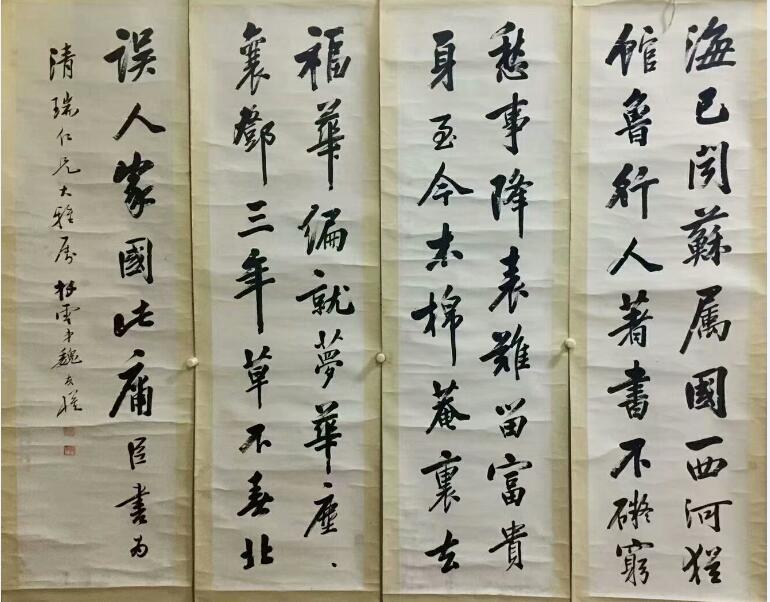 海已聞蘇属國西河猶
館魯行人著書不礙窮
愁事降表難留富貴
身至今木棉菴裏去
福華編就夢華塵
襄鄧三年草不春北
誤人家國此庸臣書為
清瑞仁兄大雅属雲弟魏